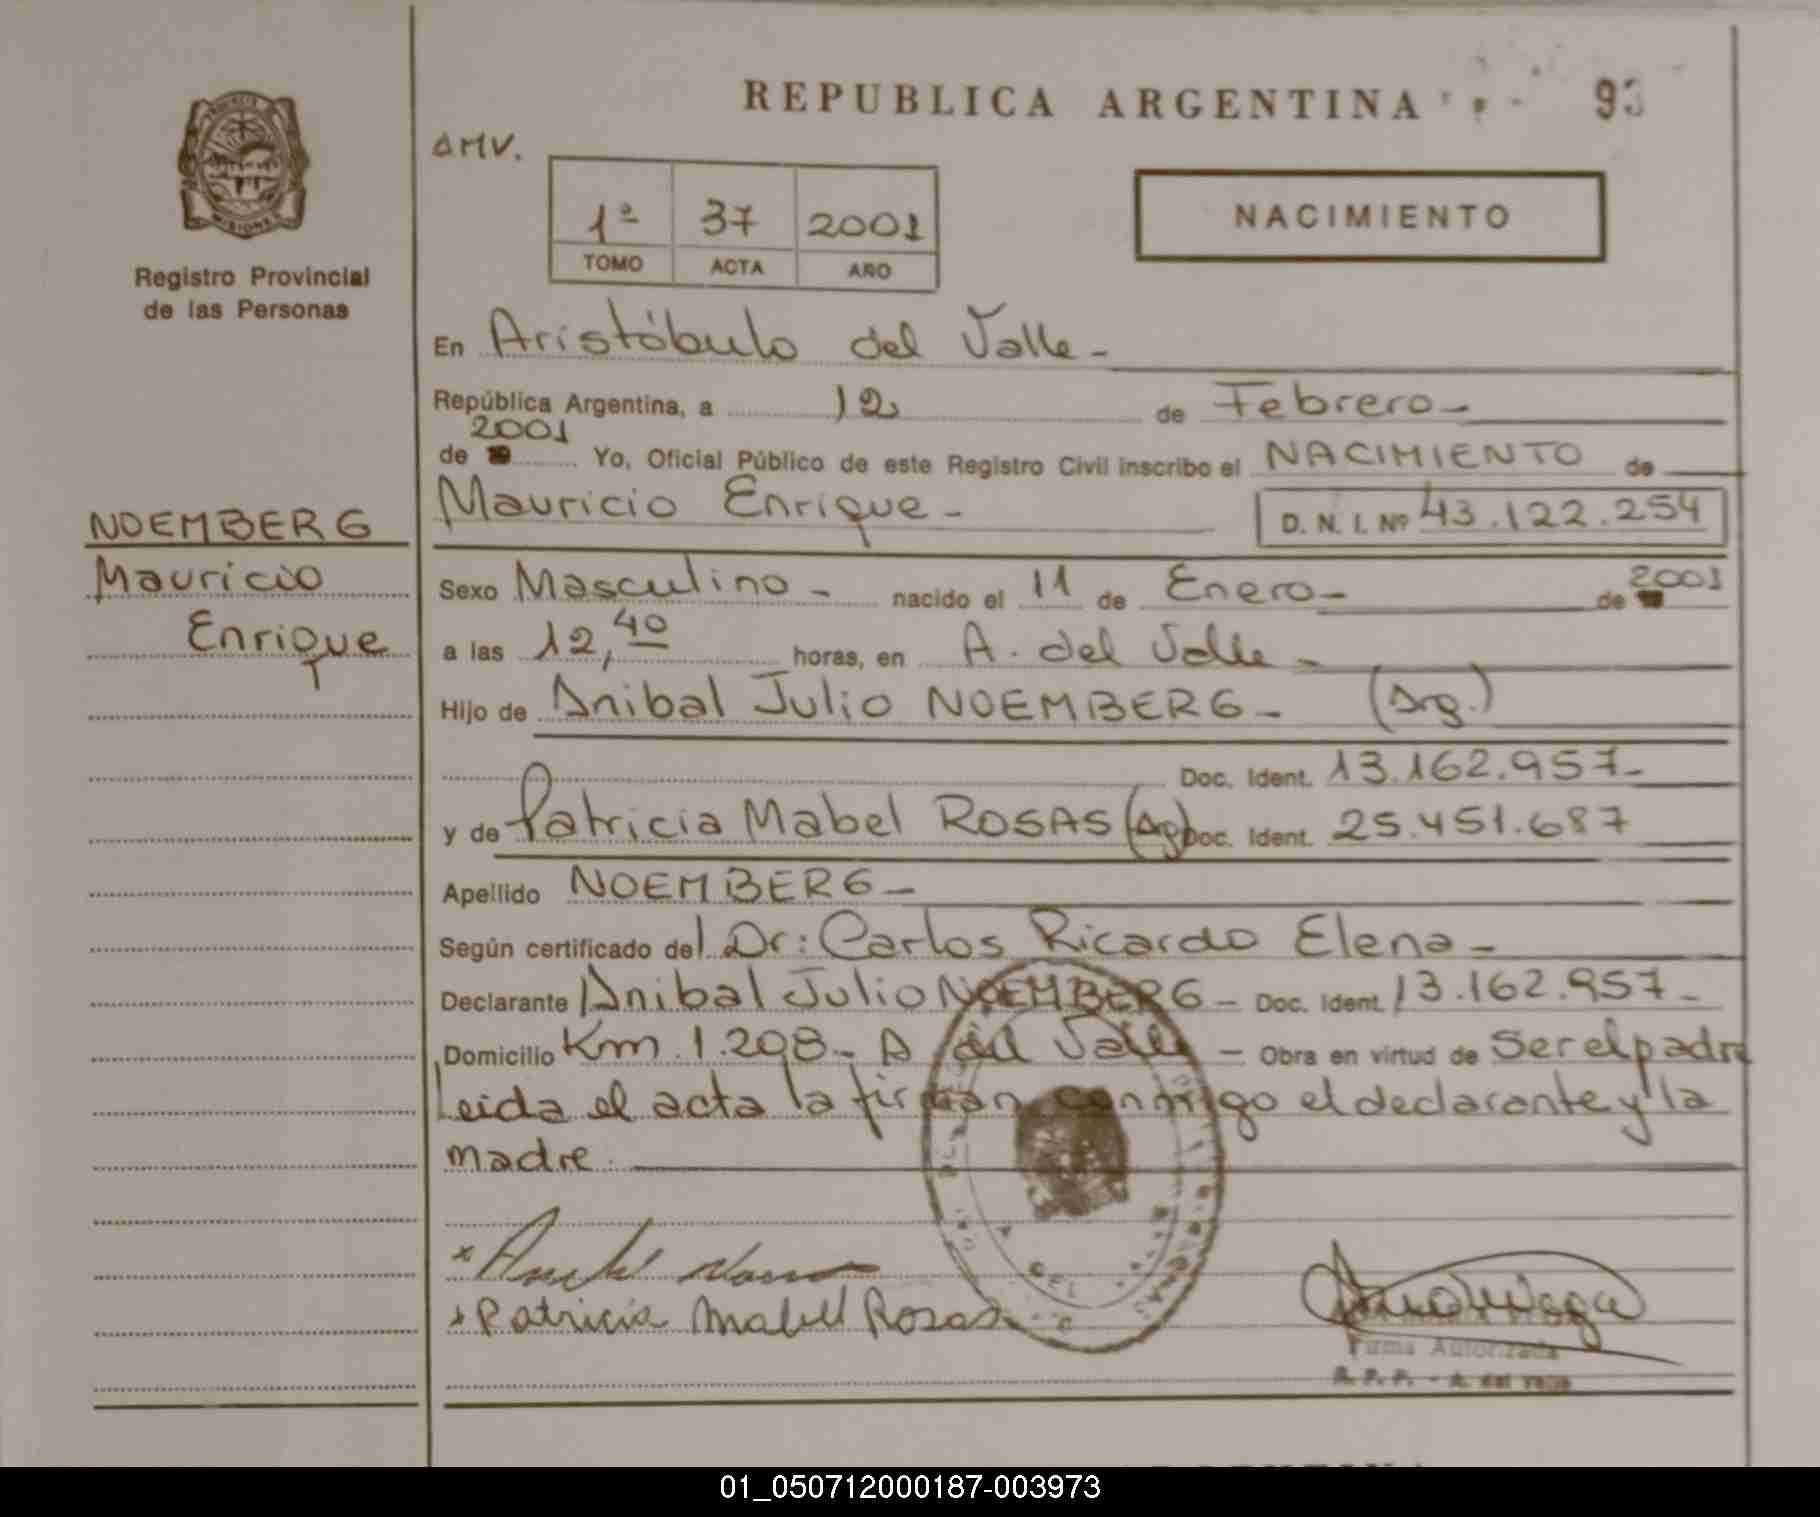 REPUBLICA ARGENTINA
93
AMV.
1ª 37 2001
TOMO ACTA AÑO
NACIMIENTO
MISIONES
Registro Provincial
de las Personas
En Aristóbulo del Valle-
República Argentina, a 12 de Febrero-
2001
de 19 Yo, Oficial Público de este Registro Civil inscribo el NACIMIENTO de
Mauricio Enrique- D. N. I. Nº 43.122.254
NOEMBERG
Mauricio
Enrique
Sexo Masculino- nacido el 11 de Enero- de 19 2001
a las 12,40 horas, en A. del Valle-
Hijo de Anibal Julio NOEMBERG- (Arg.)
Doc. Ident. 13.162.957-
y de Patricia Mabel ROSAS (Arg) Doc. Ident. 25.451.687
Apellido NOEMBERG-
Según certificado del Dr: Carlos Ricardo Elena-
Declarante Anibal Julio NOEMBERG- Doc. Ident. 13.162.957-
Domicilio Km 1.208- A del Valle- Obra en virtud de Ser el padre
Leida el acta la firman conmigo el declarante y la
madre.
Patricia Mabel Rosas
Firma Autorizada
R. P. P. - A. del Valle
01_050712000187-003973